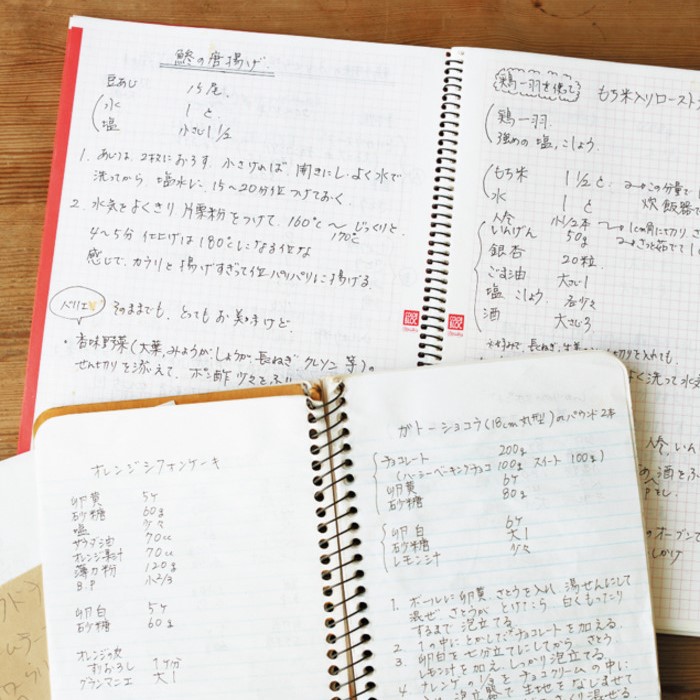 鯵の唐揚げ
豆あじ 15尾
水 1と
塩 小さじ1 1/2
1. あじは、2枚におろす。小さければ、開きにし、よく水で
洗ってから、塩水に、15〜20分位つけておく。
2. 水気をよくきり、片栗粉をつけて、160℃〜 じっくりと、
170℃
4〜5分 仕上げは180℃になる位な
感じで、カラリと揚げすぎって位パリパリに揚げる。
バリエ
そのままでも、とってもお美味けど
・香味野菜(大葉、みょうが、しょうが、長ねぎ、クレソン 等)の
せん切りを添えて、ポン酢 少々を
鶏一羽を使て
もち米入りロースト
鶏一羽
強めの塩、こしょう
もち米 1 1/2と この分量で
水 1と 炊飯器で
人参 小1/2本 1cm角に切り
いんげん 50g さっと茹でて
銀杏 20粒
ごま油 大さじ1
塩 こしょう 各少々
酒 大さじ3
切りを入れても
よく洗って水
人参、いん
のオーブンで
オレンジシフォンケーキ
卵黄 5ケ
砂糖 60g
塩 少々
サラダ油 70cc
オレンジ果汁 70cc
薄力粉 120g
B.P 小2/3
卵白 5ケ
砂糖 60g
オレンジの皮
すりおろし 1ケ分
グランマニエ 大1
ガトーショコラ(18cm丸型)orパウンド2本
チョコレート 200g
(ハーシーベーキングチョコ 100g スイート 100g)
卵黄 6ケ
砂糖 80g
卵白 6ケ
砂糖 大1
レモン汁 少々
1. ボールに卵黄、さとうを入れ 湯せんにして
混ぜ さとうが とけたら、白くもったり
するまで 泡立てる
2. 1の中にとかしたチョコレートを加える。
3. 卵白を七分立てにしてから、さとう、
レモン汁を加え、しっかり泡立てる
4. メレンゲの1/3をチョコクリームの中に
生地をなじませて